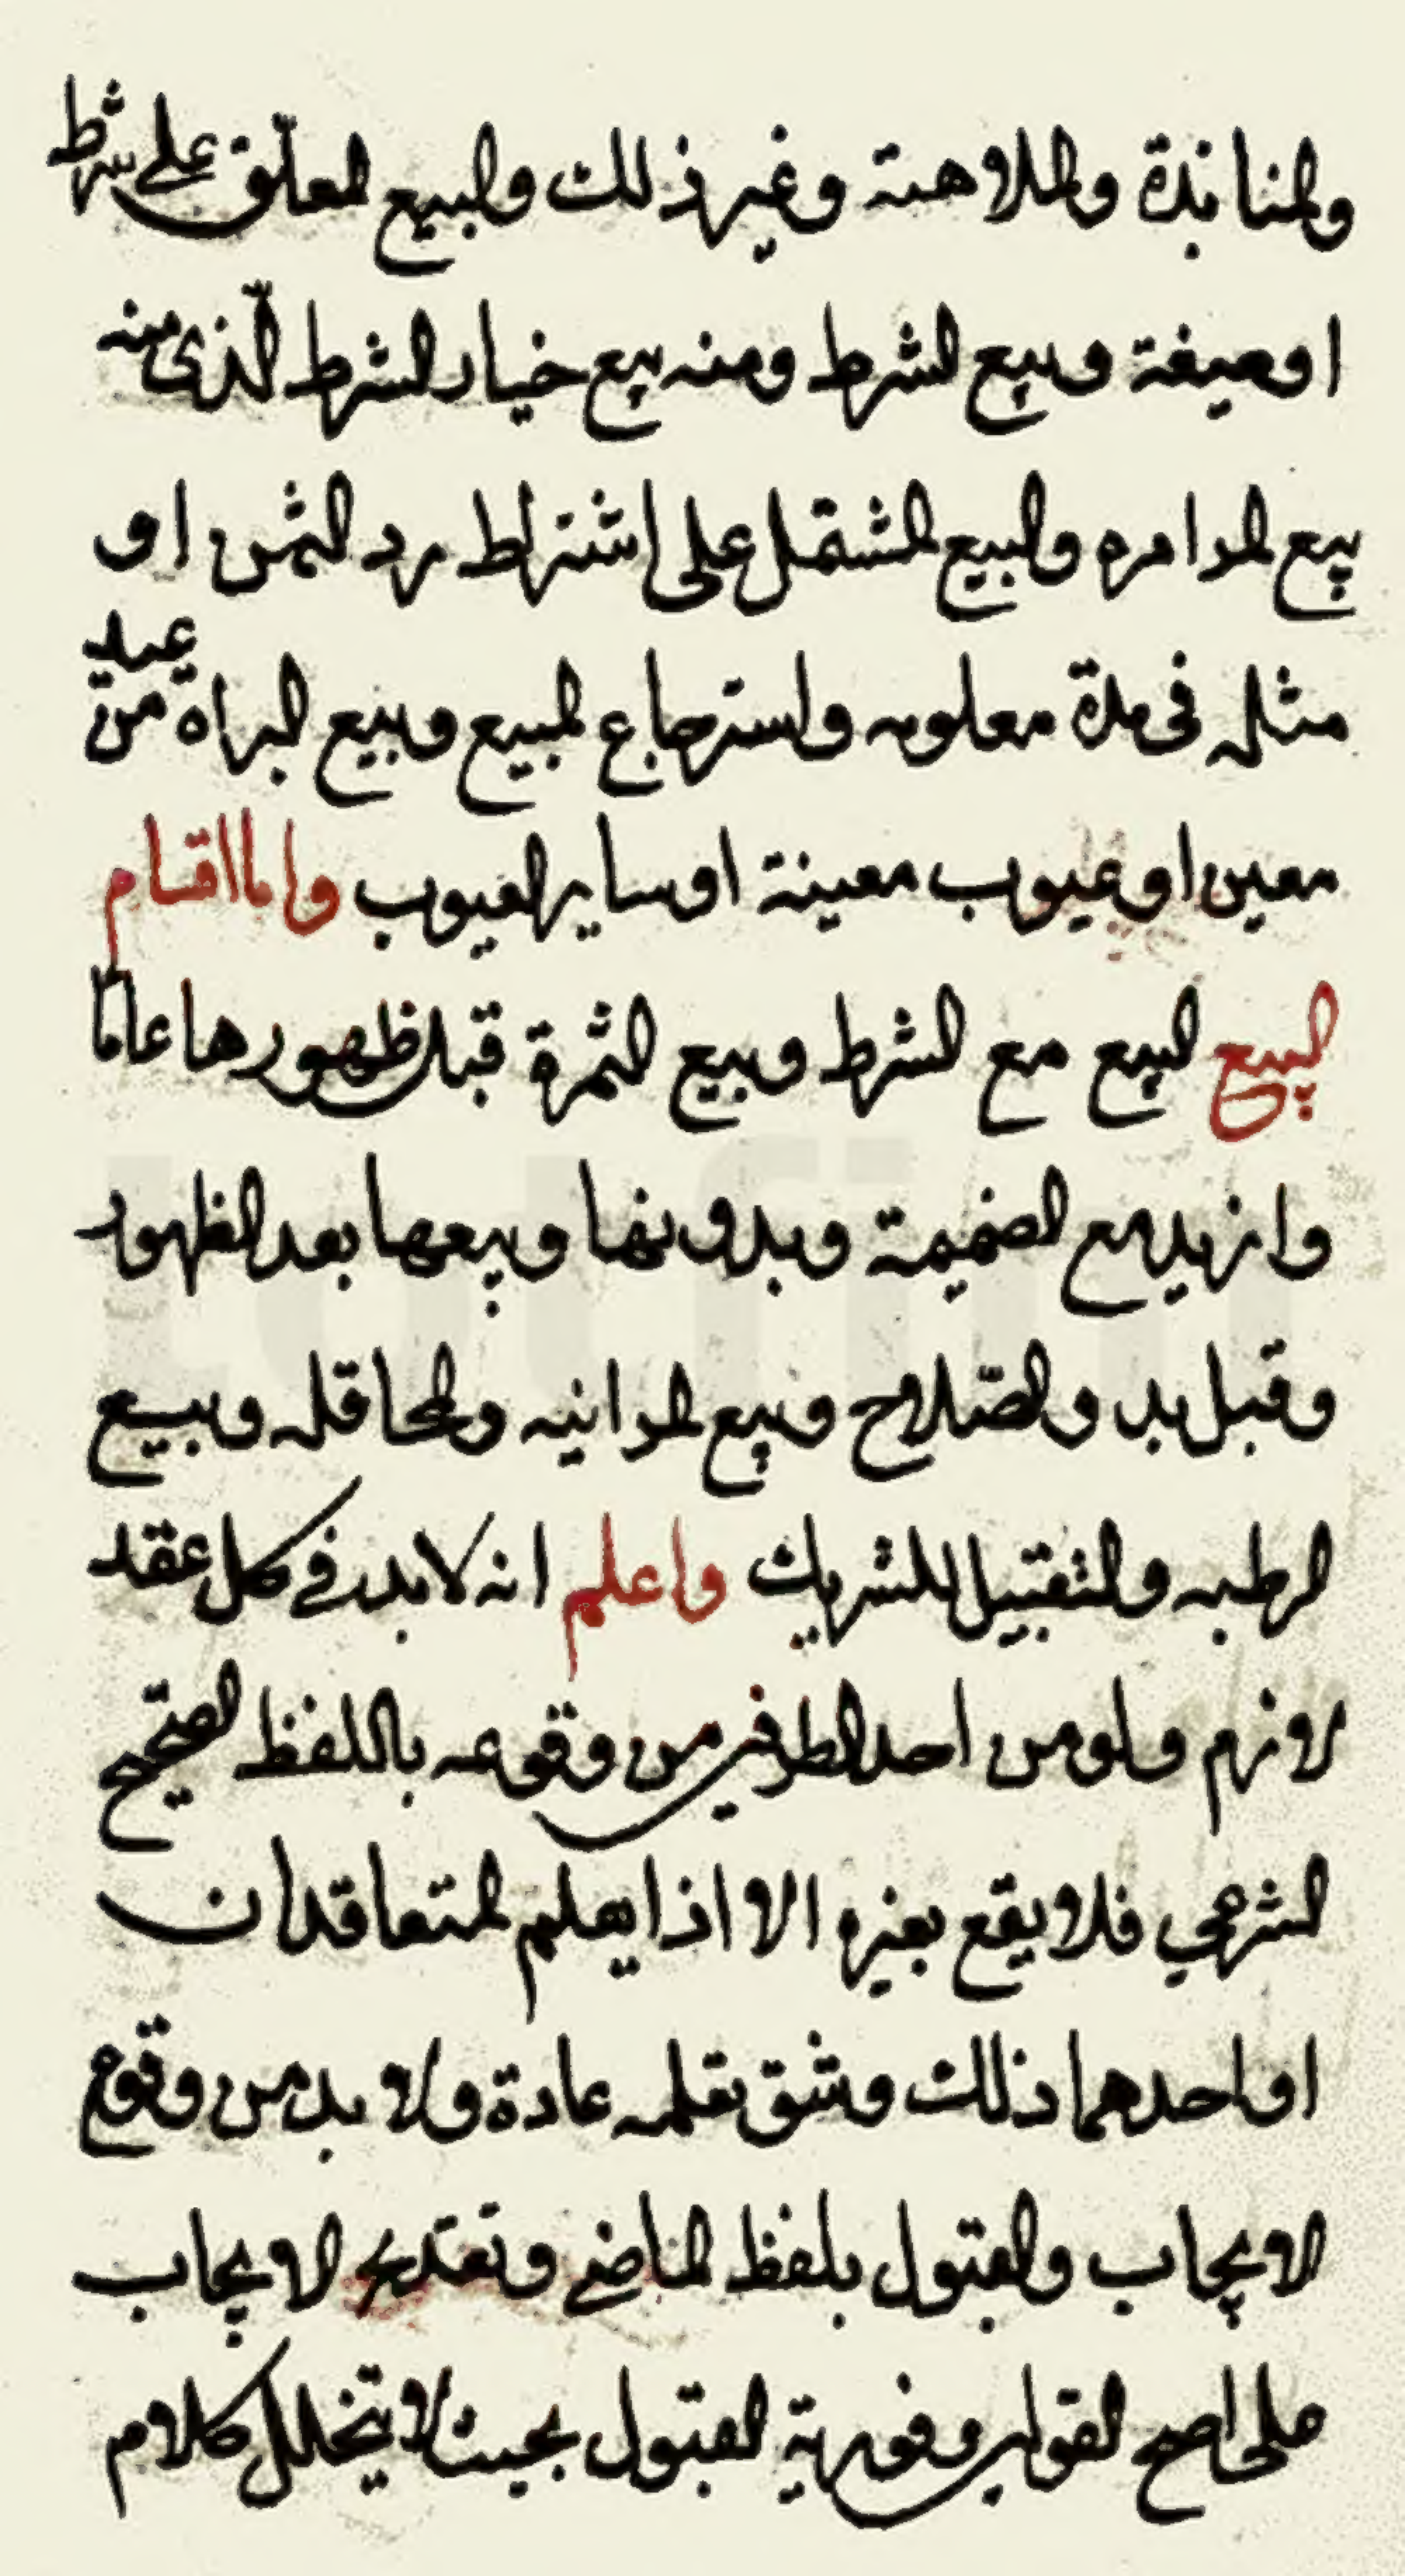 والمنابذة والملاهسة وغير ذلك والبيع المعلّق على شرط
او صيغة وبيع الشرط ومنه بيع خيار الشرط الّذى منه
بيع الموامره والبيع المشتمل على اشتراط رد الثمن او
مثله فى مدة معلومه واسترجاع المبيع وبيع البراة من عيب
معين او عيوب معينة او ساير العيوب واما اقسام
البيع البيع مع الشرط وبيع الثمرة قبل ظهورها عاما
وازيد مع الضميمة وبدونها وبيعها بعد الظهور
وقبل بدو الصّلاح وبيع المزابنه والمحاقله وبيع
الرطبه والتقبيل للشريك واعلم انه لا بد فى كل عقد
لازم ولو من احد الطرفين من وقوعه باللفظ الصّحيح
الشرعي فلا يقع بغيره الا اذا يعلم المتعاقدان
او احدهما ذلك وشق تعلمه عادة ولا بد من وقوع
الايجاب والقبول بلفظ الماضى وتقديم الايجاب
على اصح القولين وفورية القبول بحيث لا يتخلل كلام